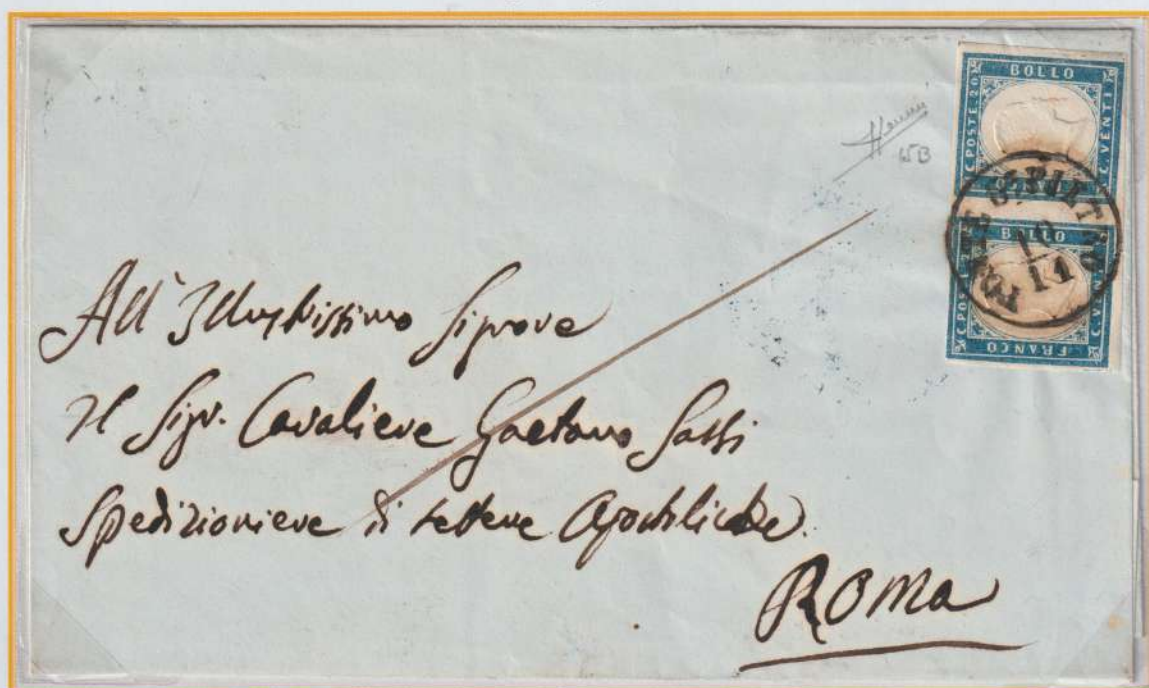 BOLLO
C. POSTE. 20
C. VENTI
15B
10
11
BOLLO
FRANCO
All' Illustrissimo Signore
Il Sigr. Cavaliere Gaetano Sassi
Spedizioniere di Lettere Apostoliche.
ROMA